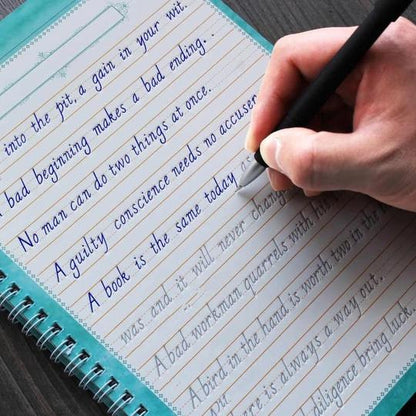 into the pit, a gain in your wit.
A bad beginning makes a bad ending..
No man can do two things at once.
A guilty conscience needs no accuser
A book is the same today as
was and it will never change
A bad workman quarrels with his
A bird in the hand is worth two in the
there is always a way out.
diligence bring luck.